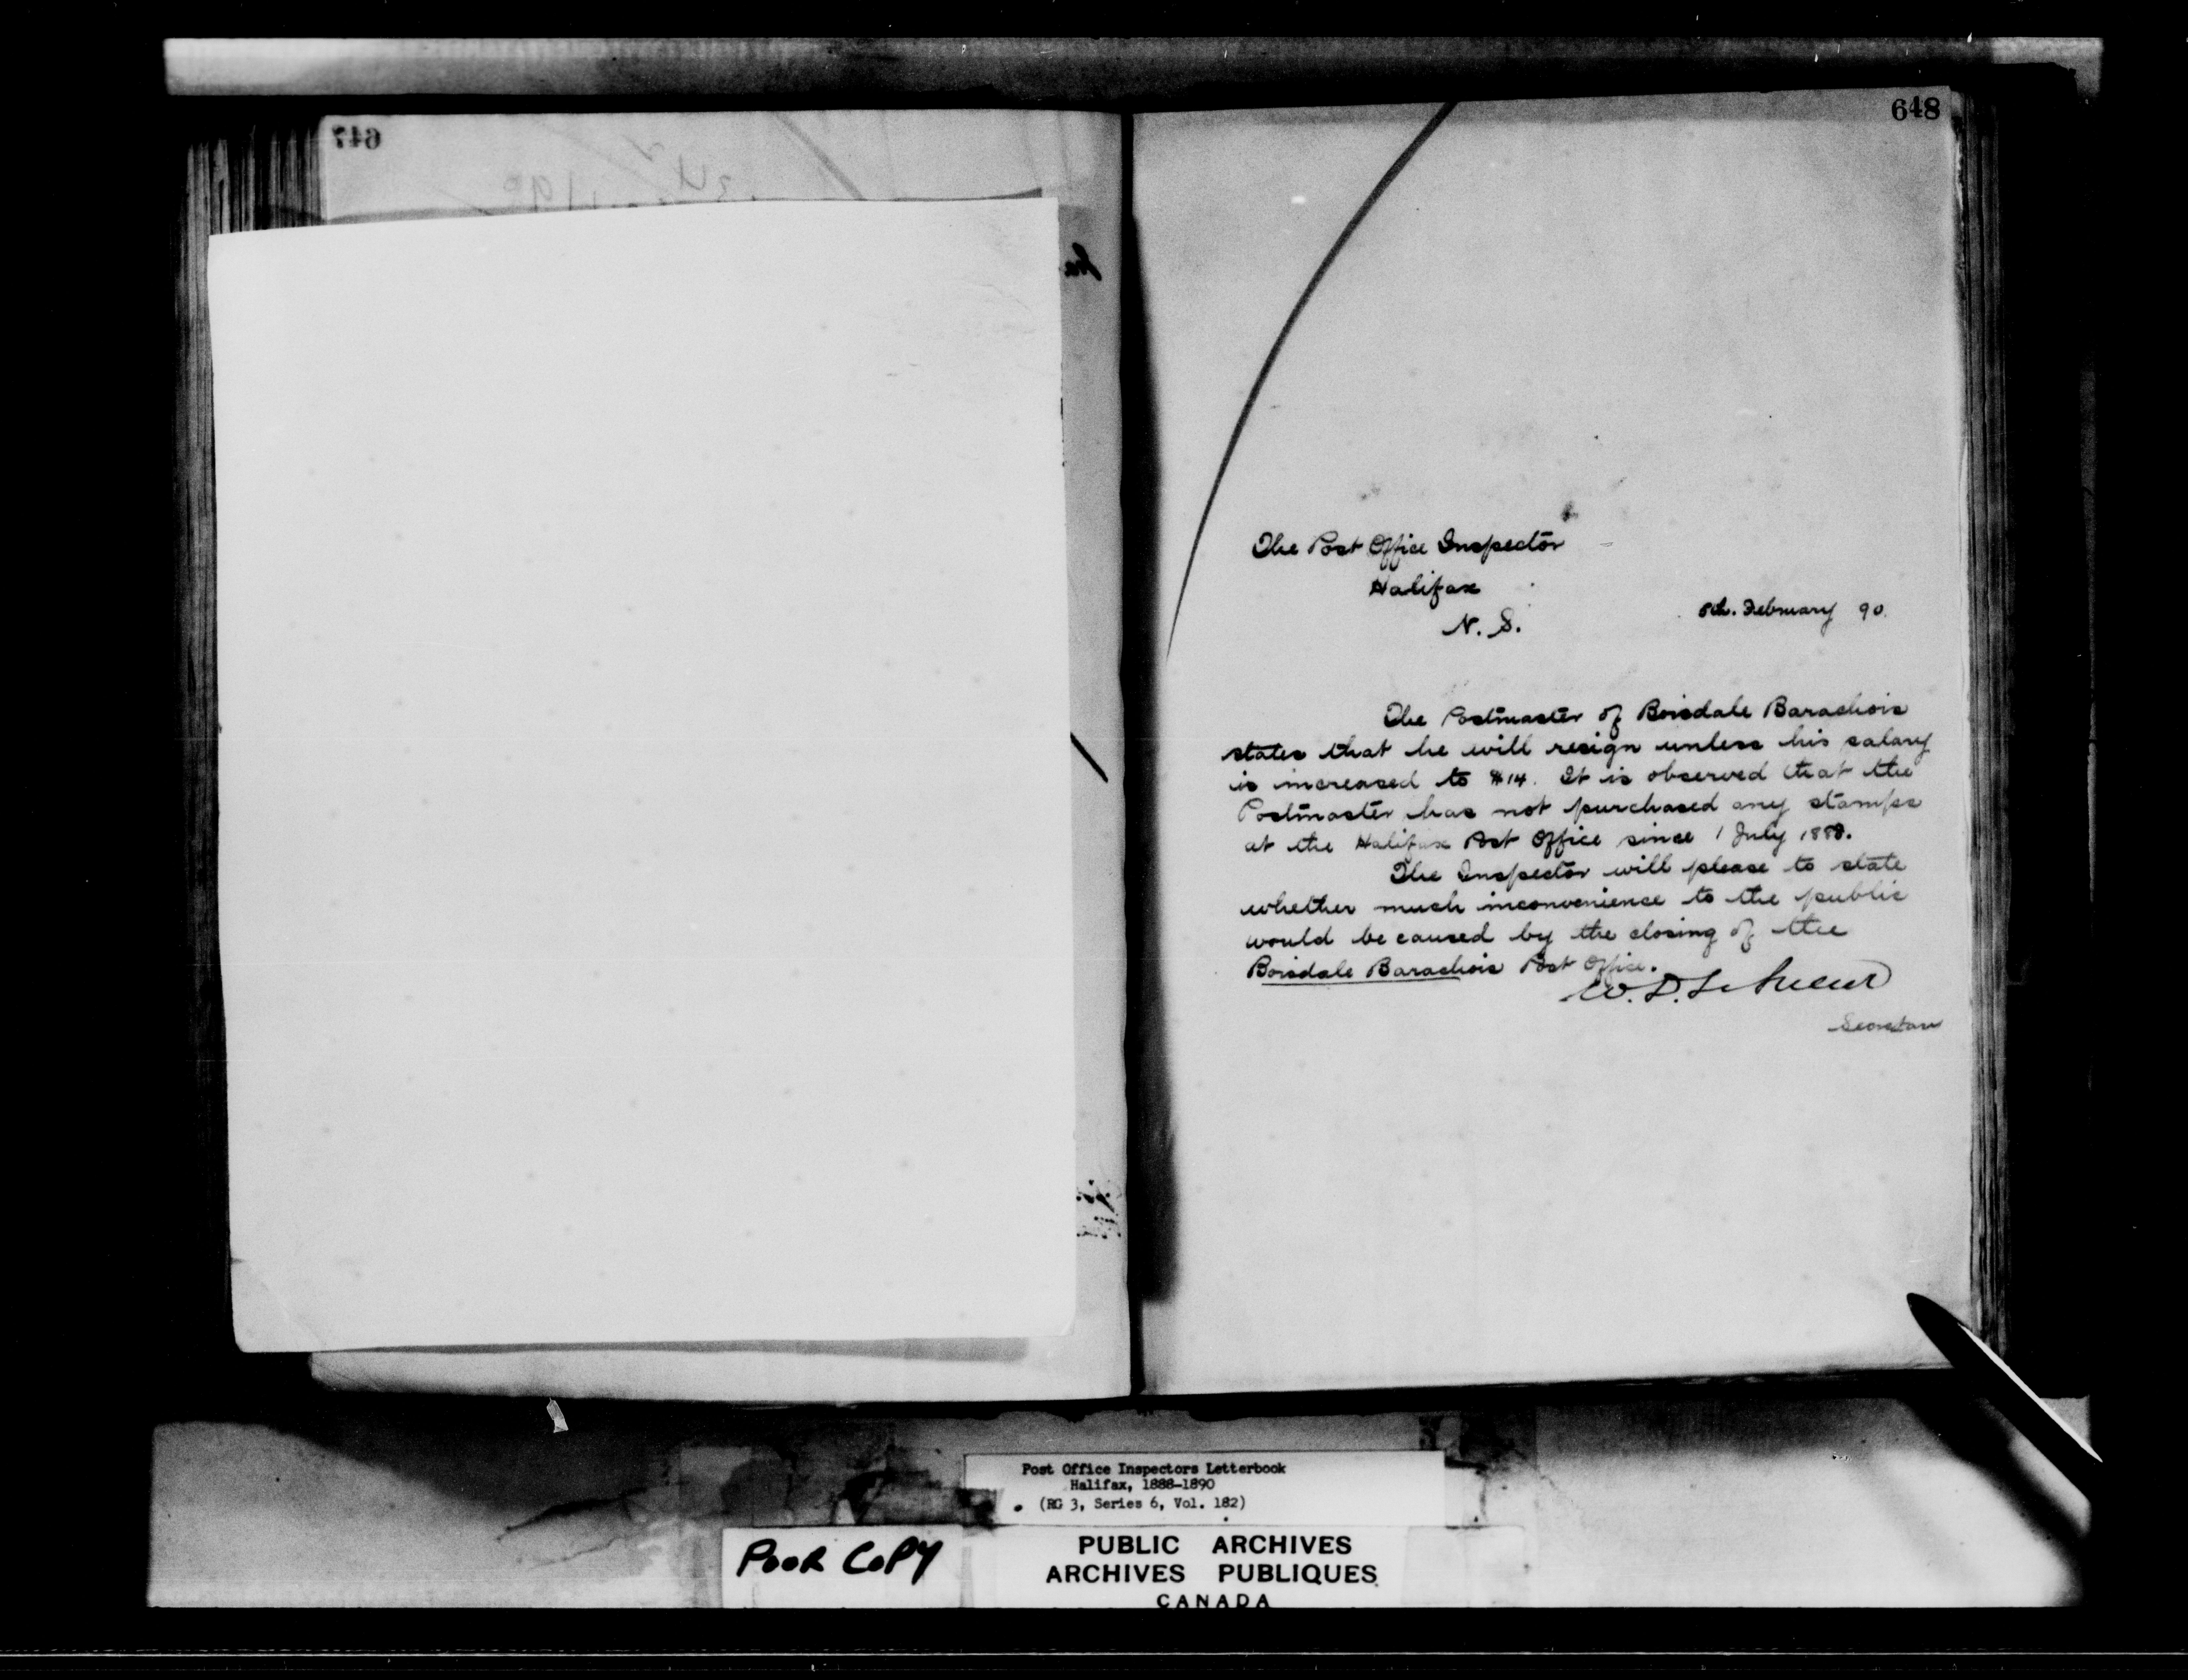 647
648
The Post Office Inspector
Halifax
N. S.
8th. February 90.
The Postmaster of Boisdale Barachois
states that he will resign unless his salary
is increased to $14. It is observed that the
Postmaster has not purchased any stamps
at the Halifax Post Office since 1 July 1888.
The Inspector will please to state
whether much inconvenience to the public
would be caused by the closing of the
Boisdale Barachois Post Office.
W. D. LeSueur
Secretary
Post Office Inspectors Letterbook
Halifax, 1888-1890
(RG 3, Series 6, Vol. 182)
POOR COPY
PUBLIC ARCHIVES
ARCHIVES PUBLIQUES
CANADA